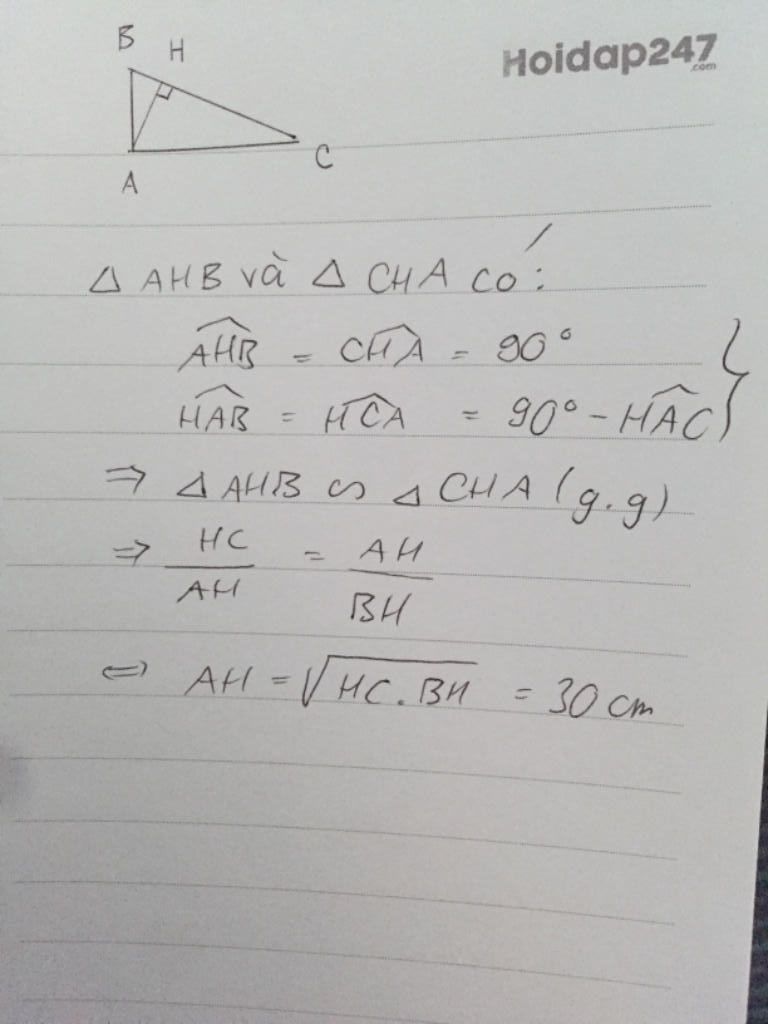 B H
Hoidap247
.com
C
A
Δ AHB và Δ CHA có:
\widehat{AHB} = \widehat{CHA} = 90°
\widehat{HAB} = \widehat{HCA} = 90° - \widehat{HAC}
⇒ Δ AHB ∽ Δ CHA (g.g)
⇒ HC/AH = AH/BH
⇔ AH = √(HC.BH) = 30 cm